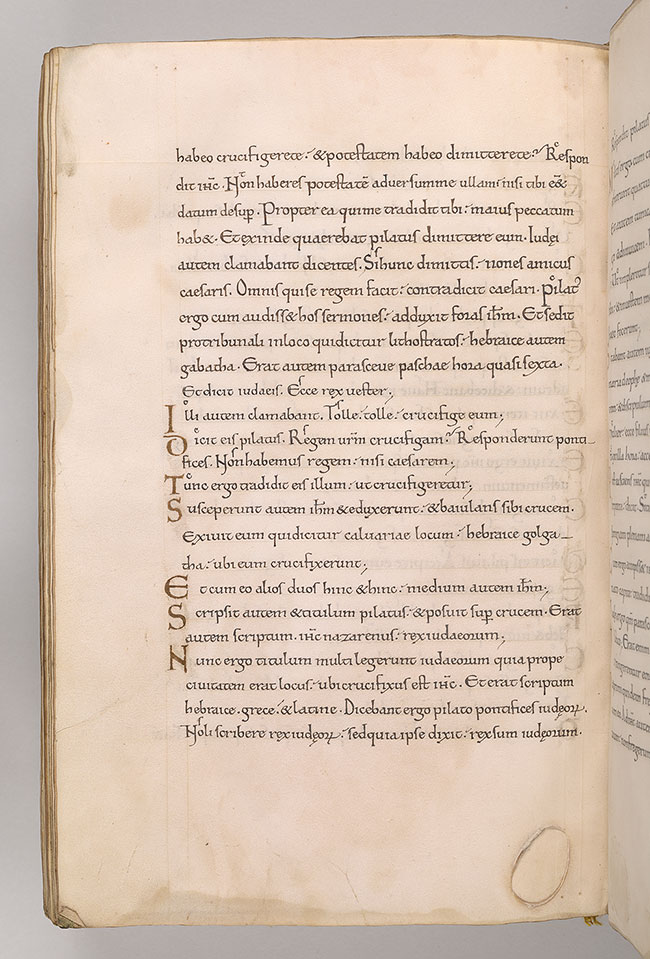 habeo crucifigere te? & potestatem habeo dimittere te? Respon
dit ihc. Non haberes potestatē adversum me ullam: nisi tibi eē&
datum desup̄. Propterea qui me tradidit tibi: maius peccatum
hab&. Et exinde quaerebat pilatus dimittere eum. Iudei
autem clamabant dicentes. Si hunc dimittis: non es amicus
caesaris. Omnis qui se regem facit: contradicit caesari. Pilat'
ergo cum audiss& hos sermones: adduxit foras ihm̄. Et sedit
pro tribunali in loco qui dicitur lithostratos: hebraice autem
gabatha. Erat autem parasceve paschae hora quasi sexta.
Et dicit iudaeis. Ecce rex vester;
Illi autem clamabant. Tolle: tolle: crucifige eum;
Dicit eis pilatus. Regem urm̄ crucifigam? Responderunt ponti
fices. Non habemus regem: nisi caesarem;
Tunc ergo tradidit eis illum: ut crucifigeretur;
Susceperunt autem ihm̄ & eduxerunt: & baiulans sibi crucem.
Exivit eum qui dicitur calvariae locum: hebraice golga
tha: ubi eum crucifixerunt;
Et cum eo alios duos hinc & hinc: medium autem ihm̄;
Scripsit autem & titulum pilatus: & posuit sup̄ crucem. Erat
autem scriptum. ihc nazarenus: rex iudaeorum;
Nunc ergo titulum multi legerunt iudaeorum quia prope
civitatem erat locus: ubi crucifixus est ihc. Et erat scriptum
hebraice. grece. & latine. Dicebant ergo pilato pontifices iudęoꝝ.
Noli scribere rex iudęoꝝ: sed quia ipse dixit: rex sum iudęorum.